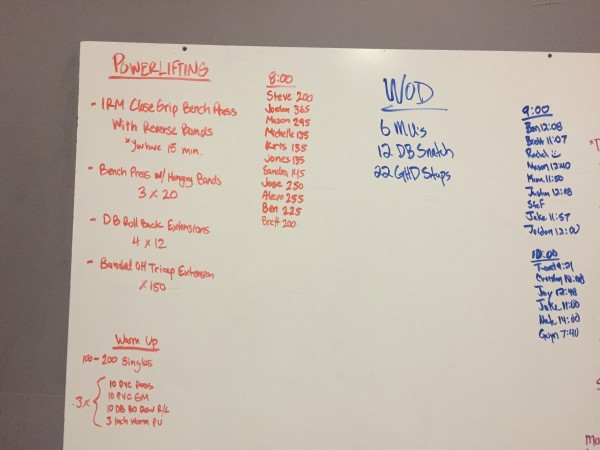 POWERLIFTING
- 1RM Close Grip Bench Press
With Reverse Bands
*You have 15 min.
- Bench Press w/ Hanging Bands
3 x 20
- DB Roll Back Extensions
4 x 12
- Banded OH Tricep Extension
x 150
Warm Up
100-200 Singles
3x
10 PVC Pass
10 PVC GM
10 DB BO Row R/L
3 Inch Worm PU
8:00
Steve 200
Jordan 365
Mason 295
Michelle 135
Kurts 135
Jones 135
Sandra 145
Jose 250
255
Ben 225
Brett 200
WOD
6 MU's
12 DB Snatch
22 GHD Situps
9:00
Ben 12:08
Brett 11:07
Rachel
Mason 12:40
11:50
Justin 12:08
Stef
Jake 11:57
Jordan 12:00
10:00
9:21
10:08
Jay 12:48
Jake 11:00
14:00
Gwyn 7:40